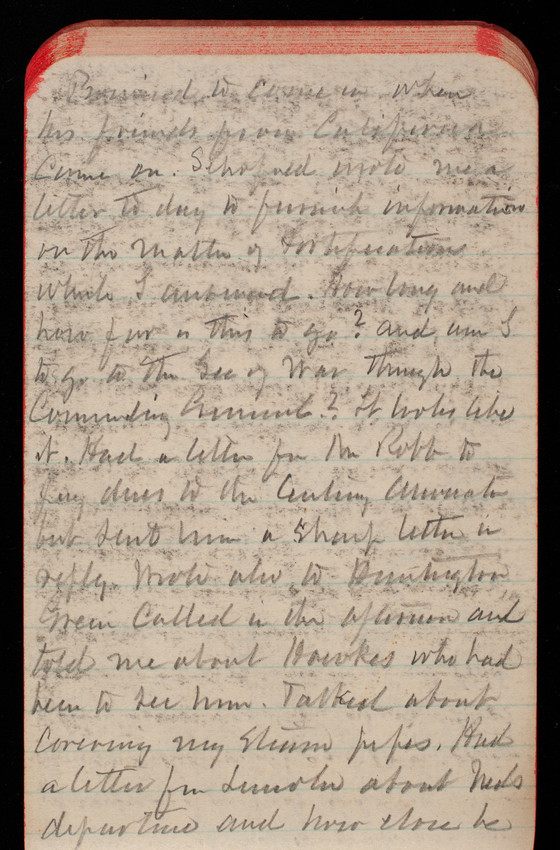 Promised to come in when
his friends from California
come on. Schofield wrote me a
letter to day to furnish information
on the matter of Fortifications
which I answered. How long and
how far is this to go? and am I
to go to the Sec of War through the
Commanding General? It looks like
it. Had a letter fm Mr Robb to
pay dues to the Century
but sent him a sharp letter in
reply. Wrote also to Huntington
Green Called in the afternoon and
told me about Hawkes who had
been to see him. Talked about
Covering my Steam pipes. Had
a letter fm Lincoln about Neds
departure and how close he